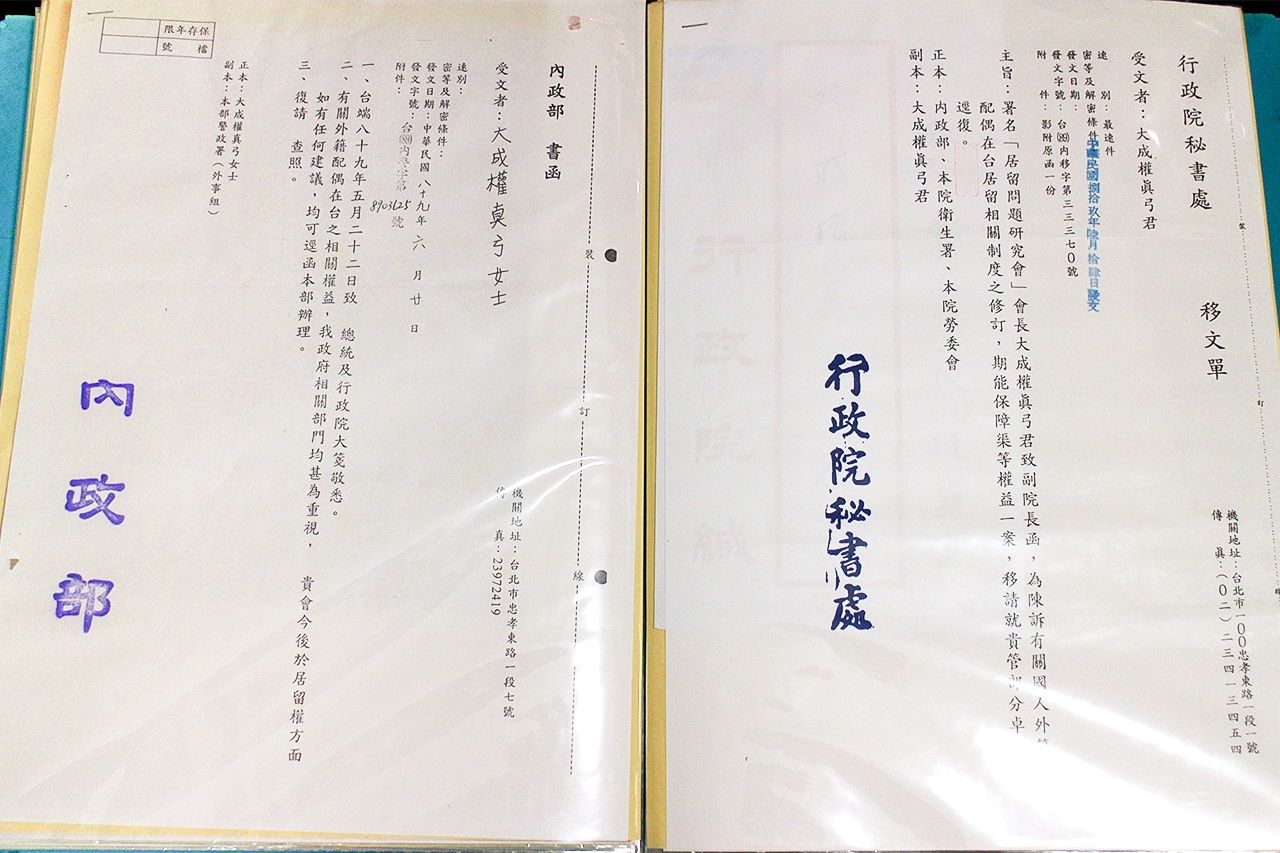 行政院秘書處 移文單
機關地址：台北市一00忠孝東路一段一號
傳 真：(0二)二三四一三四五四
受文者：大成權眞弓君
速 別：最速件
密等及解密條件：
發文日期：中華民國捌拾玖年陸月拾肆日發文
發文字號：台(89)內移字第三三三七0號
附 件：影附原函一份
主旨：署名「居留問題研究會」會長大成權眞弓君致副院長函，為陳訴有關國人外籍
配偶在台居留相關制度之修訂，期能保障渠等權益一案，移請就貴管部分卓
逕復。
正本：內政部、本院衛生署、本院勞委會
副本：大成權眞弓君
行政院秘書處
裝
訂
線
內政部 書函
機關地址：台北市忠孝東路一段七號
傳 真：23972419
受文者：大成權真弓女士
速別：
密等及解密條件：
發文日期：中華民國八十九年六月廿日
發文字號：台(89)內警字第8903625號
附件：
一、台端八十九年五月二十二日致 總統及行政院大箋敬悉。
二、有關外籍配偶在台之相關權益，我政府相關部門均甚為重視， 貴會今後於居留權方面
如有任何建議，均可逕函本部辦理。
三、復請 查照。
正本：大成權真弓女士
副本：本部警政署（外事組）
保存年限
檔號
內政部
裝
訂
線